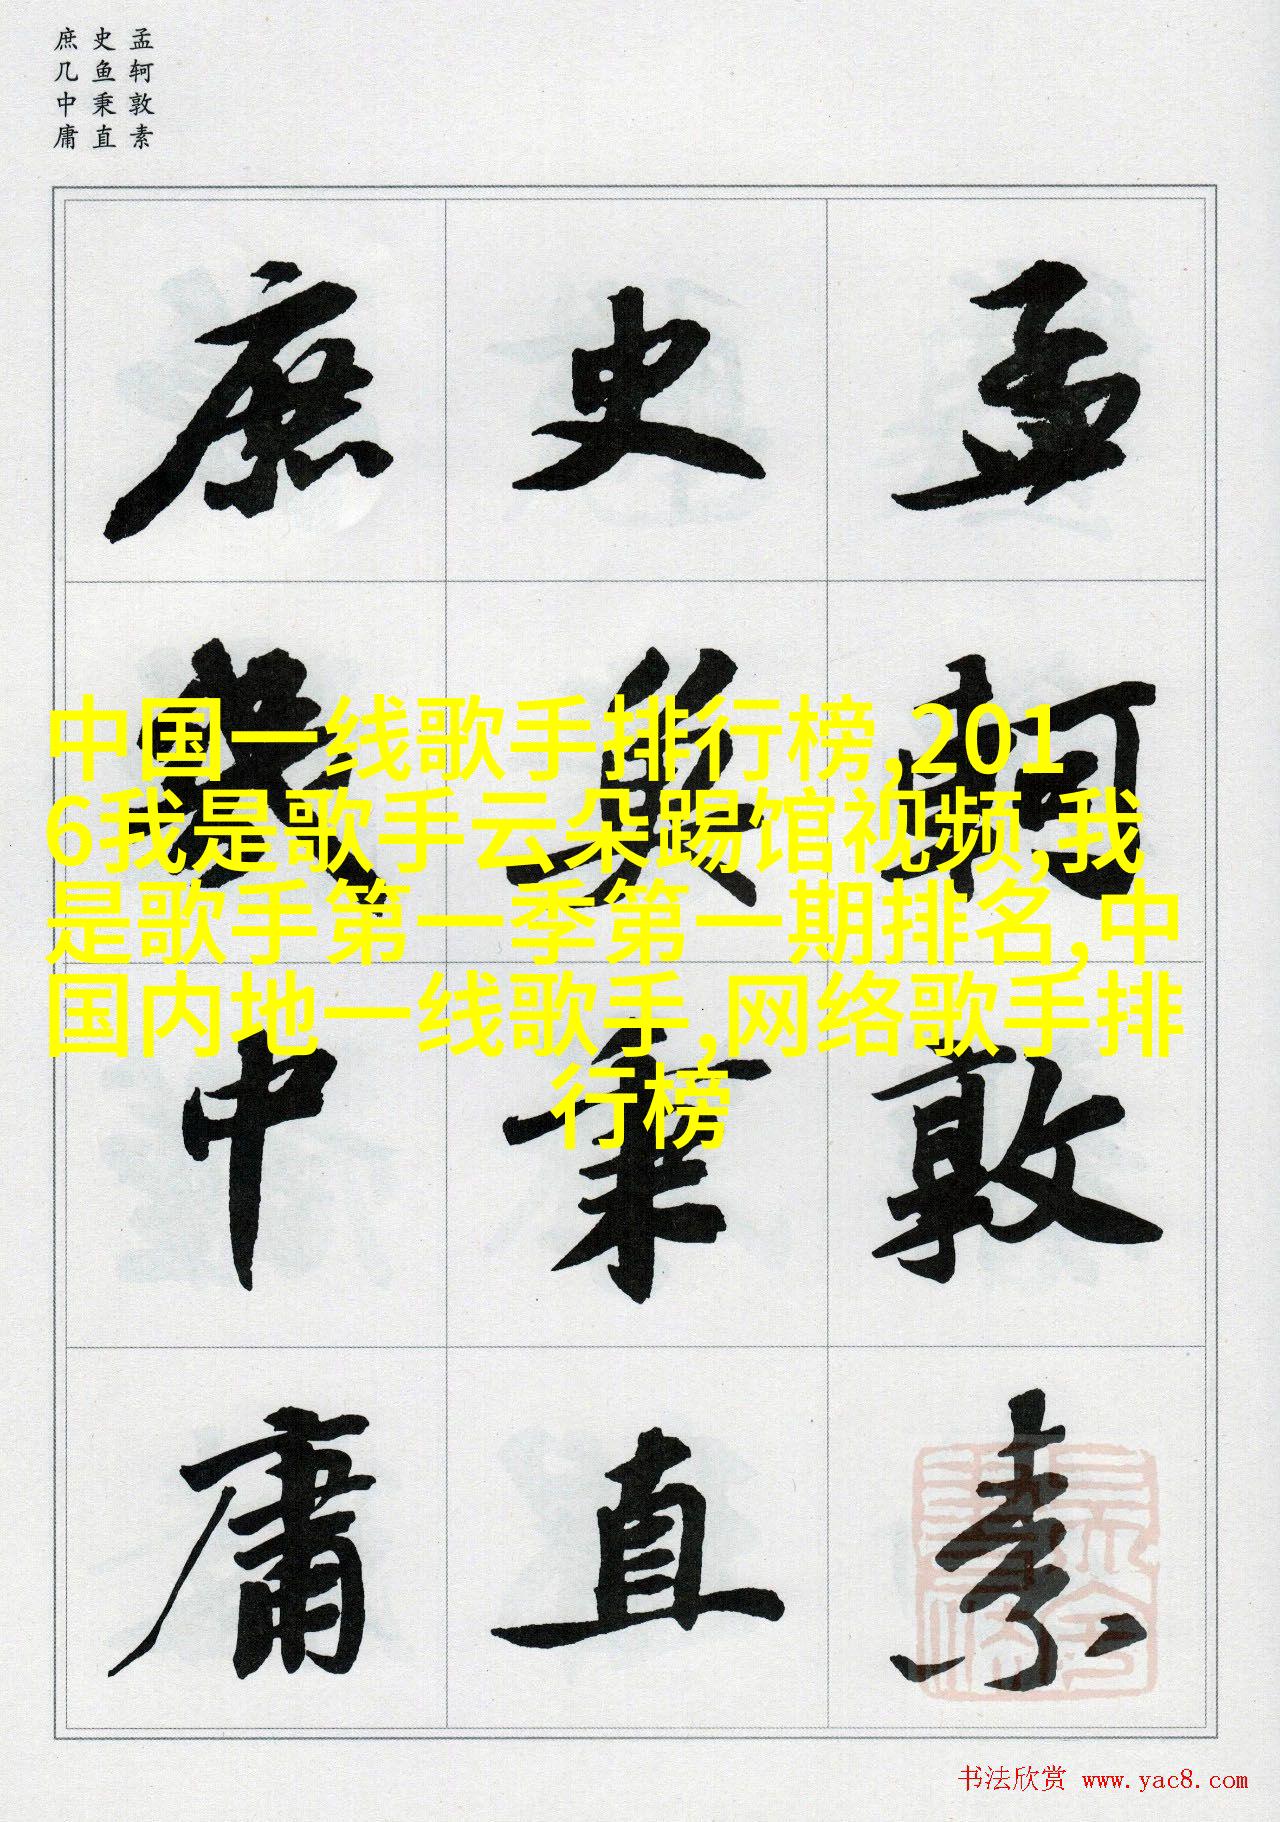 孟轲敦素
史鱼秉直
庶几中庸
孟軻敦素
史魚秉直
庶幾中庸
中国一线歌手排行榜,201
6我是歌手云朵踢馆视频,我
是歌手第一季第一期排名,中
国内地一线歌手,网络歌手排
行榜
书法欣赏 www.yac8.com